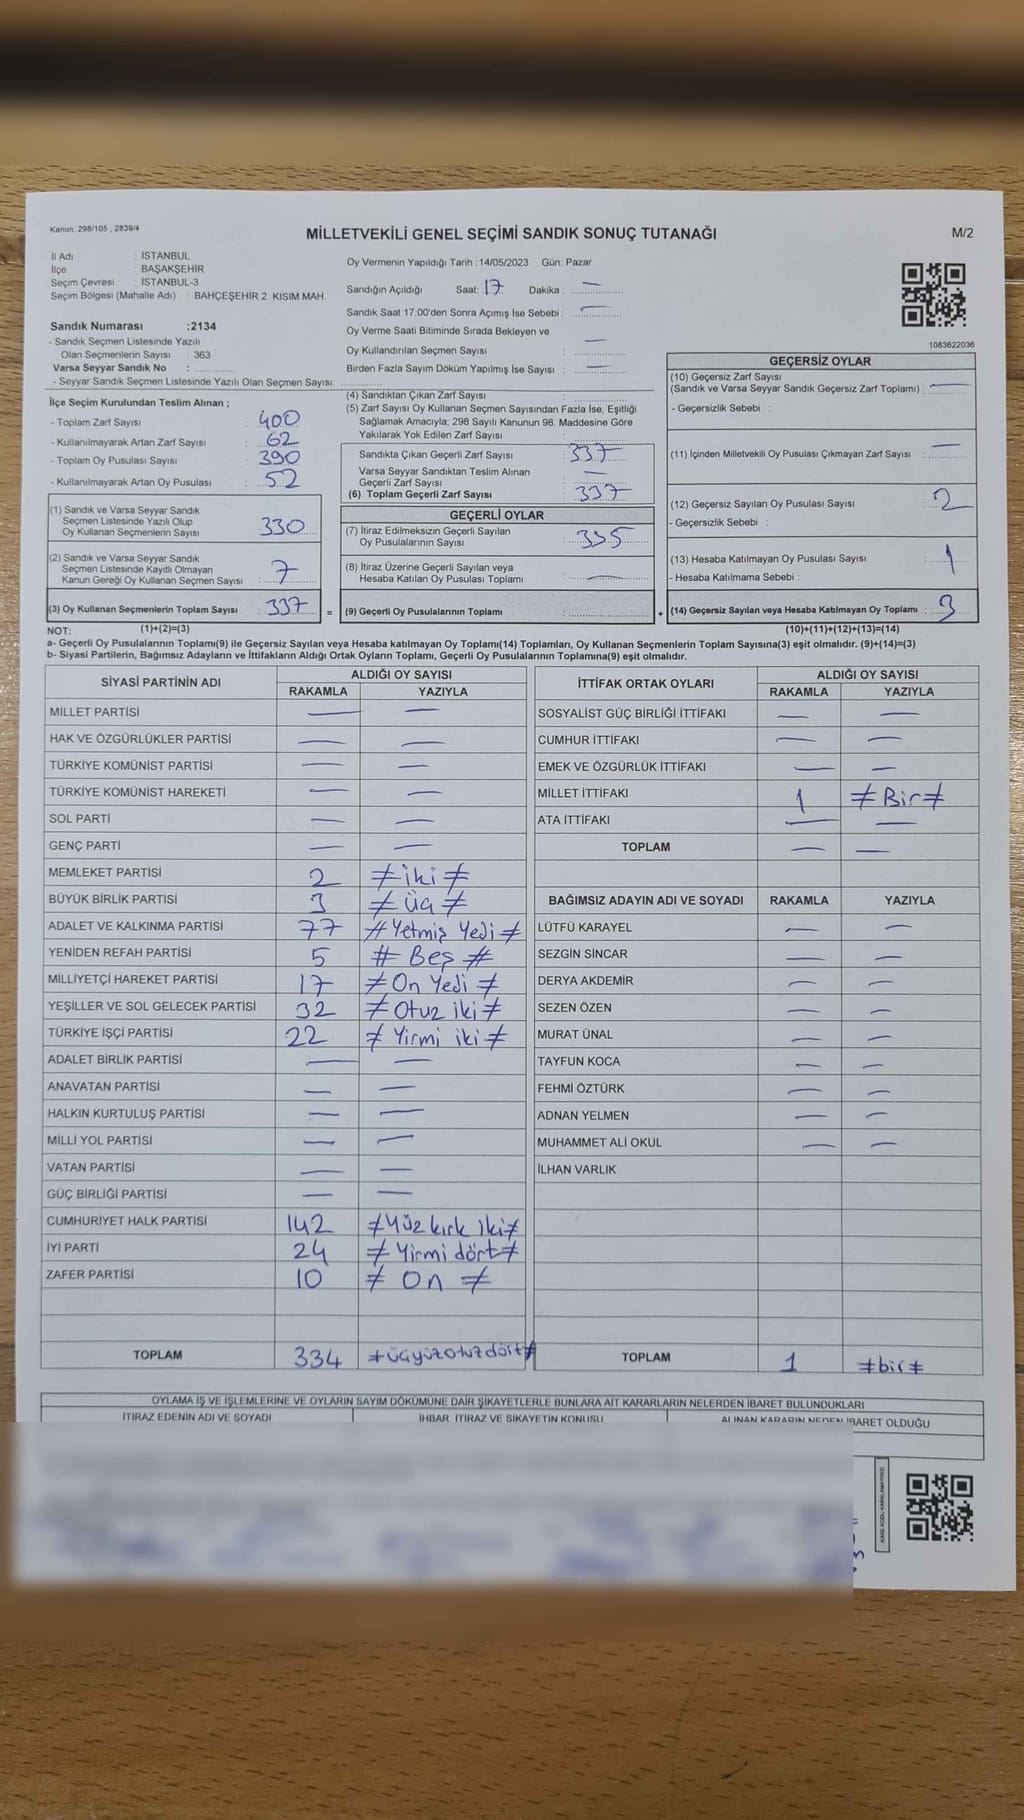 Kanun, 298/105 , 2839/4
MİLLETVEKİLİ GENEL SEÇİMİ SANDIK SONUÇ TUTANAĞI
M/2
İl Adı : İSTANBUL
İlçe : BAŞAKŞEHİR
Seçim Çevresi : İSTANBUL-3
Seçim Bölgesi (Mahalle Adı) : BAHÇEŞEHİR 2. KISIM MAH.
Sandık Numarası :2134
- Sandık Seçmen Listesinde Yazılı
Olan Seçmenlerin Sayısı : 363
Varsa Seyyar Sandık No :
- Seyyar Sandık Seçmen Listesinde Yazılı Olan Seçmen Sayısı:
Oy Vermenin Yapıldığı Tarih :14/05/2023 Gün: Pazar
Sandığın Açıldığı Saat: 17 Dakika : —
Sandık Saat 17:00'den Sonra Açımış İse Sebebi : —
Oy Verme Saati Bitiminde Sırada Bekleyen ve
Oy Kullandırılan Seçmen Sayısı : —
Birden Fazla Sayım Döküm Yapılmış İse Sayısı : —
1083622036
İlçe Seçim Kurulundan Teslim Alınan ;
- Toplam Zarf Sayısı : 400
- Kullanılmayarak Artan Zarf Sayısı : 62
- Toplam Oy Pusulası Sayısı : 390
- Kullanılmayarak Artan Oy Pusulası : 52
(1) Sandık ve Varsa Seyyar Sandık
Seçmen Listesinde Yazılı Olup
Oy Kullanan Seçmenlerin Sayısı : 330
(2) Sandık ve Varsa Seyyar Sandık
Seçmen Listesinde Kayıtlı Olmayan
Kanun Gereği Oy Kullanan Seçmen Sayısı : 7
(3) Oy Kullanan Seçmenlerin Toplam Sayısı : 337 =
(1)+(2)=(3)
(4) Sandıktan Çıkan Zarf Sayısı :
(5) Zarf Sayısı Oy Kullanan Seçmen Sayısından Fazla İse, Eşitliği
Sağlamak Amacıyla; 298 Sayılı Kanunun 98. Maddesine Göre
Yakılarak Yok Edilen Zarf Sayısı :
Sandıkta Çıkan Geçerli Zarf Sayısı : 337
Varsa Seyyar Sandıktan Teslim Alınan
Geçerli Zarf Sayısı : —
(6) Toplam Geçerli Zarf Sayısı : 337
GEÇERLİ OYLAR
(7) İtiraz Edilmeksizin Geçerli Sayılan
Oy Pusulalarının Sayısı : 335
(8) İtiraz Üzerine Geçerli Sayılan veya
Hesaba Katılan Oy Pusulası Toplamı : —
(9) Geçerli Oy Pusulalarının Toplamı : +
GEÇERSİZ OYLAR
(10) Geçersiz Zarf Sayısı
(Sandık ve Varsa Seyyar Sandık Geçersiz Zarf Toplamı) : —
- Geçersizlik Sebebi :
(11) İçinden Milletvekili Oy Pusulası Çıkmayan Zarf Sayısı : —
(12) Geçersiz Sayılan Oy Pusulası Sayısı : 2
- Geçersizlik Sebebi :
(13) Hesaba Katılmayan Oy Pusulası Sayısı : 1
- Hesaba Katılmama Sebebi :
(14) Geçersiz Sayılan veya Hesaba Katılmayan Oy Toplamı : 3
(10)+(11)+(12)+(13)=(14)
NOT:
a- Geçerli Oy Pusulalarının Toplamı(9) ile Geçersiz Sayılan veya Hesaba katılmayan Oy Toplamı(14) Toplamları, Oy Kullanan Seçmenlerin Toplam Sayısına(3) eşit olmalıdır. (9)+(14)=(3)
b- Siyasi Partilerin, Bağımsız Adayların ve İttifakların Aldığı Ortak Oyların Toplamı, Geçerli Oy Pusulalarının Toplamına(9) eşit olmalıdır.
SİYASİ PARTİNİN ADI ALDIĞI OY SAYISI
RAKAMLA YAZIYLA
MİLLET PARTİSİ — —
HAK VE ÖZGÜRLÜKLER PARTİSİ — —
TÜRKİYE KOMÜNİST PARTİSİ — —
TÜRKİYE KOMÜNİST HAREKETİ — —
SOL PARTİ — —
GENÇ PARTİ — —
MEMLEKET PARTİSİ 2 ≠ iki ≠
BÜYÜK BİRLİK PARTİSİ 3 ≠ üç ≠
ADALET VE KALKINMA PARTİSİ 77 # Yetmiş Yedi ≠
YENİDEN REFAH PARTİSİ 5 # Beş #
MİLLİYETÇİ HAREKET PARTİSİ 17 ≠ On Yedi ≠
YEŞİLLER VE SOL GELECEK PARTİSİ 32 ≠ Otuz iki ≠
TÜRKİYE İŞÇİ PARTİSİ 22 ≠ Yirmi iki ≠
ADALET BİRLİK PARTİSİ — —
ANAVATAN PARTİSİ — —
HALKIN KURTULUŞ PARTİSİ — —
MİLLİ YOL PARTİSİ — —
VATAN PARTİSİ — —
GÜÇ BİRLİĞİ PARTİSİ — —
CUMHURİYET HALK PARTİSİ 142 ≠Yüz kırk iki≠
İYİ PARTİ 24 ≠ Yirmi dört≠
ZAFER PARTİSİ 10 ≠ On ≠
TOPLAM 334 ≠üçyüzotuzdört≠
İTTİFAK ORTAK OYLARI ALDIĞI OY SAYISI
RAKAMLA YAZIYLA
SOSYALİST GÜÇ BİRLİĞİ İTTİFAKI — —
CUMHUR İTTİFAKI — —
EMEK VE ÖZGÜRLÜK İTTİFAKI — —
MİLLET İTTİFAKI 1 ≠ Bir≠
ATA İTTİFAKI — —
TOPLAM — —
BAĞIMSIZ ADAYIN ADI VE SOYADI RAKAMLA YAZIYLA
LÜTFÜ KARAYEL — —
SEZGİN SİNCAR — —
DERYA AKDEMİR — —
SEZEN ÖZEN — —
MURAT ÜNAL — —
TAYFUN KOCA — —
FEHMİ ÖZTÜRK — —
ADNAN YELMEN — —
MUHAMMET ALİ OKUL — —
İLHAN VARLIK
TOPLAM 1 ≠bir≠
OYLAMA İŞ VE İŞLEMLERİNE VE OYLARIN SAYIM DÖKÜMÜNE DAİR ŞİKAYETLERLE BUNLARA AİT KARARLARIN NELERDEN İBARET BULUNDUKLARI
İTİRAZ EDENİN ADI VE SOYADI İHBAR, İTİRAZ VE ŞİKAYETİN KONUSU ALINAN KARARIN NEDEN İBARET OLDUĞU